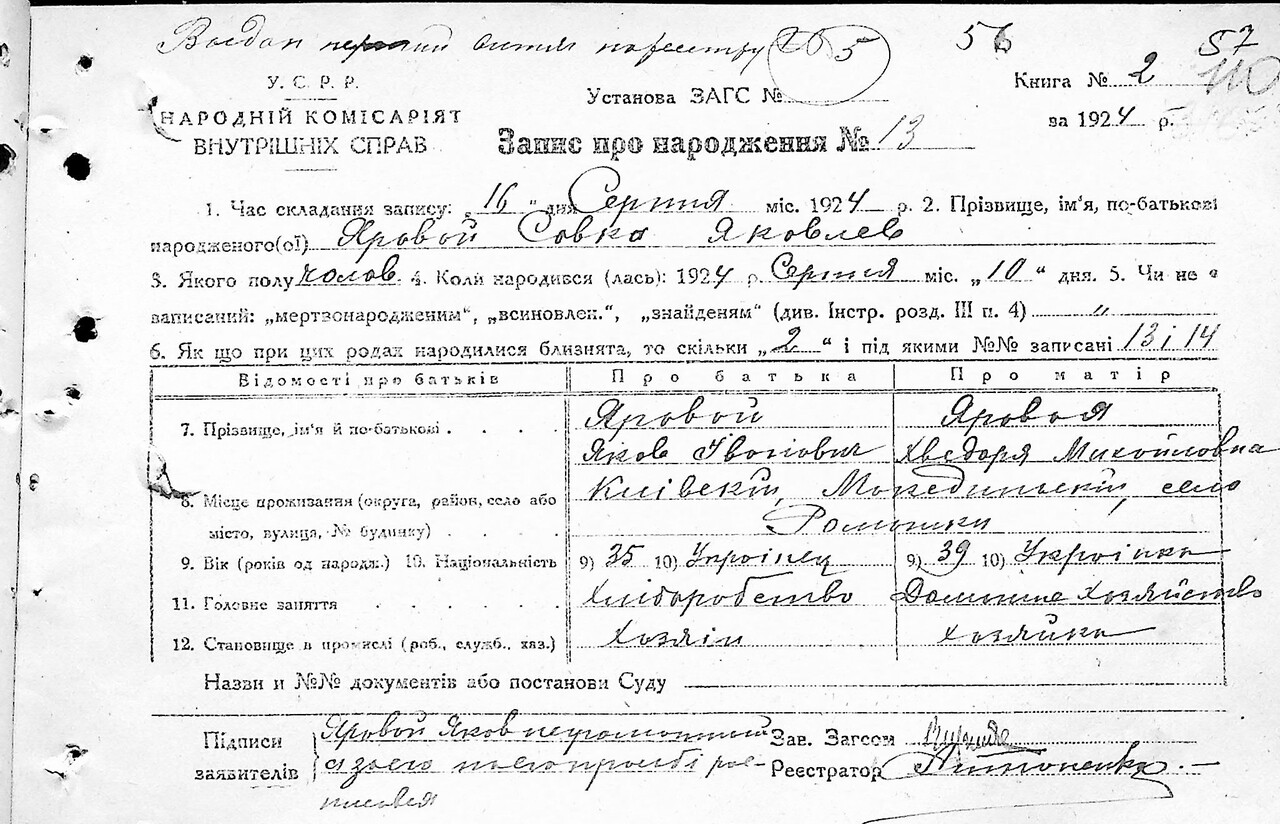 Видан первий витяг по реестру № 5 56 57
110
У. С. Р. Р.
НАРОДНІЙ КОМІСАРІЯТ
ВНУТРІШНІХ СПРАВ
Установа ЗАГС №
Книга № 2
за 1924 р.
Запис про народження № 13
1. Час складання запису: „16“ дня Серпня міс. 1924 р. 2. Прізвище, ім'я, по-батькові
народженого(ої) Яровой Совка Яковлев
3. Якого полу чолов. 4. Коли народився (лась): 1924 р. Серпня міс. „10“ дня. 5. Чи не є
записаний: „мертвонародженим“, „всиновлен.“, „знайденям“ (див. Інстр. розд. III п. 4) „
6. Як що при цих родах народилися близнята, то скільки „2“ і під якими №№ записані 13 і 14
Відомості про батьків Про батька Про матір
7. Прізвище, ім'я й по-батькові . . . . Яровой Яровоя
Яков Іванович Хведоря Микойловна
8. Місце проживання (округа, район, село або Киівскій, село
місто, вулиця, № будинку) . . . . Ромашки
9. Вік (років од народж.) 10. Національність 9) 35 10) Украінец 9) 39 10) Украінка
11. Головне заняття . . . . . Хліборобство Домашне Хозяйство
12. Становище в промислі (роб., служб., хаз.) Хозяін Хозяйка
Назви и №№ документів або постанови Суду
Підписи
заявителів
Яровой Яков неграмотний
а за его по его просьбі рос-
писався
Зав. Загсом
Реєстратор